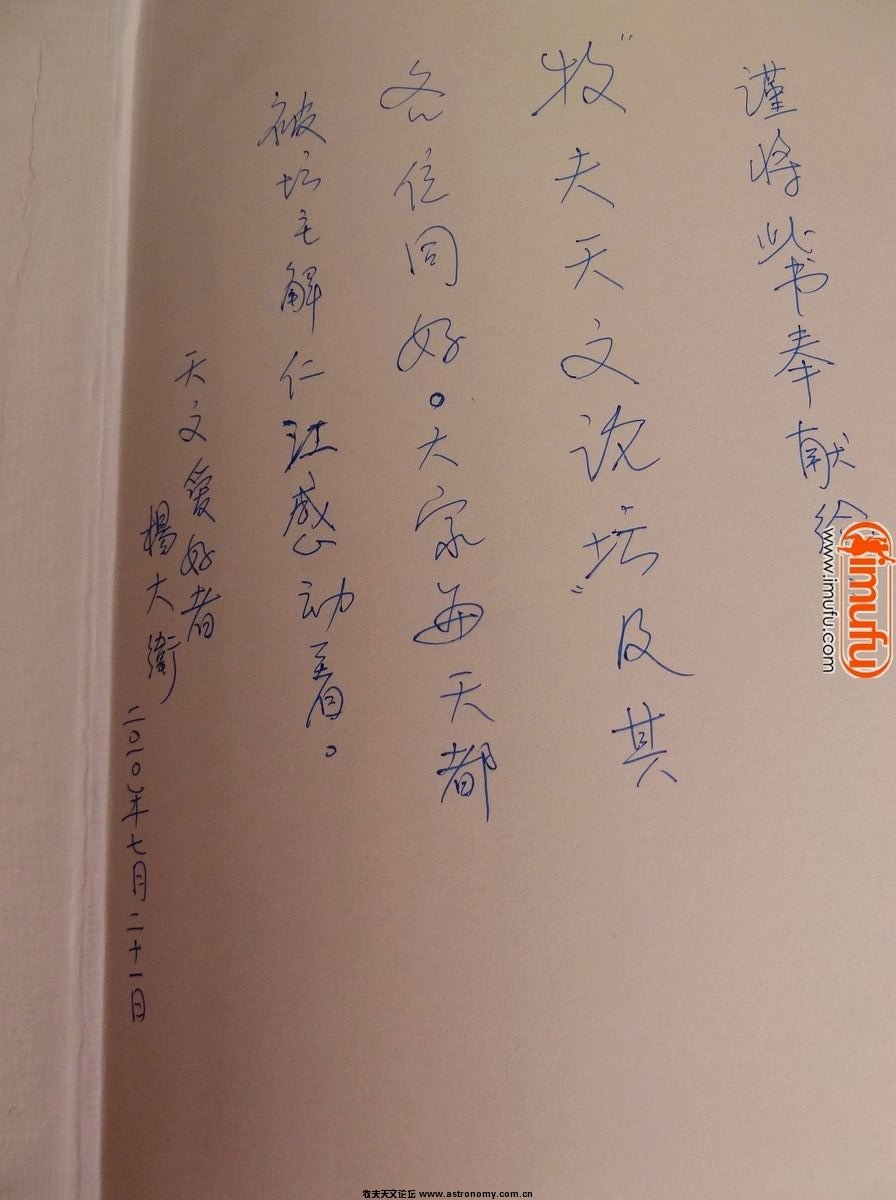 谨将此书奉献给
“牧夫天文论坛”及其
各位同好。大家每天都
被坛主解仁江感动着。
天文爱好者
楊大衛
二〇一〇年七月二十一日
imufu
www.imufu.com
牧夫天文论坛 www.astronomy.com.cn